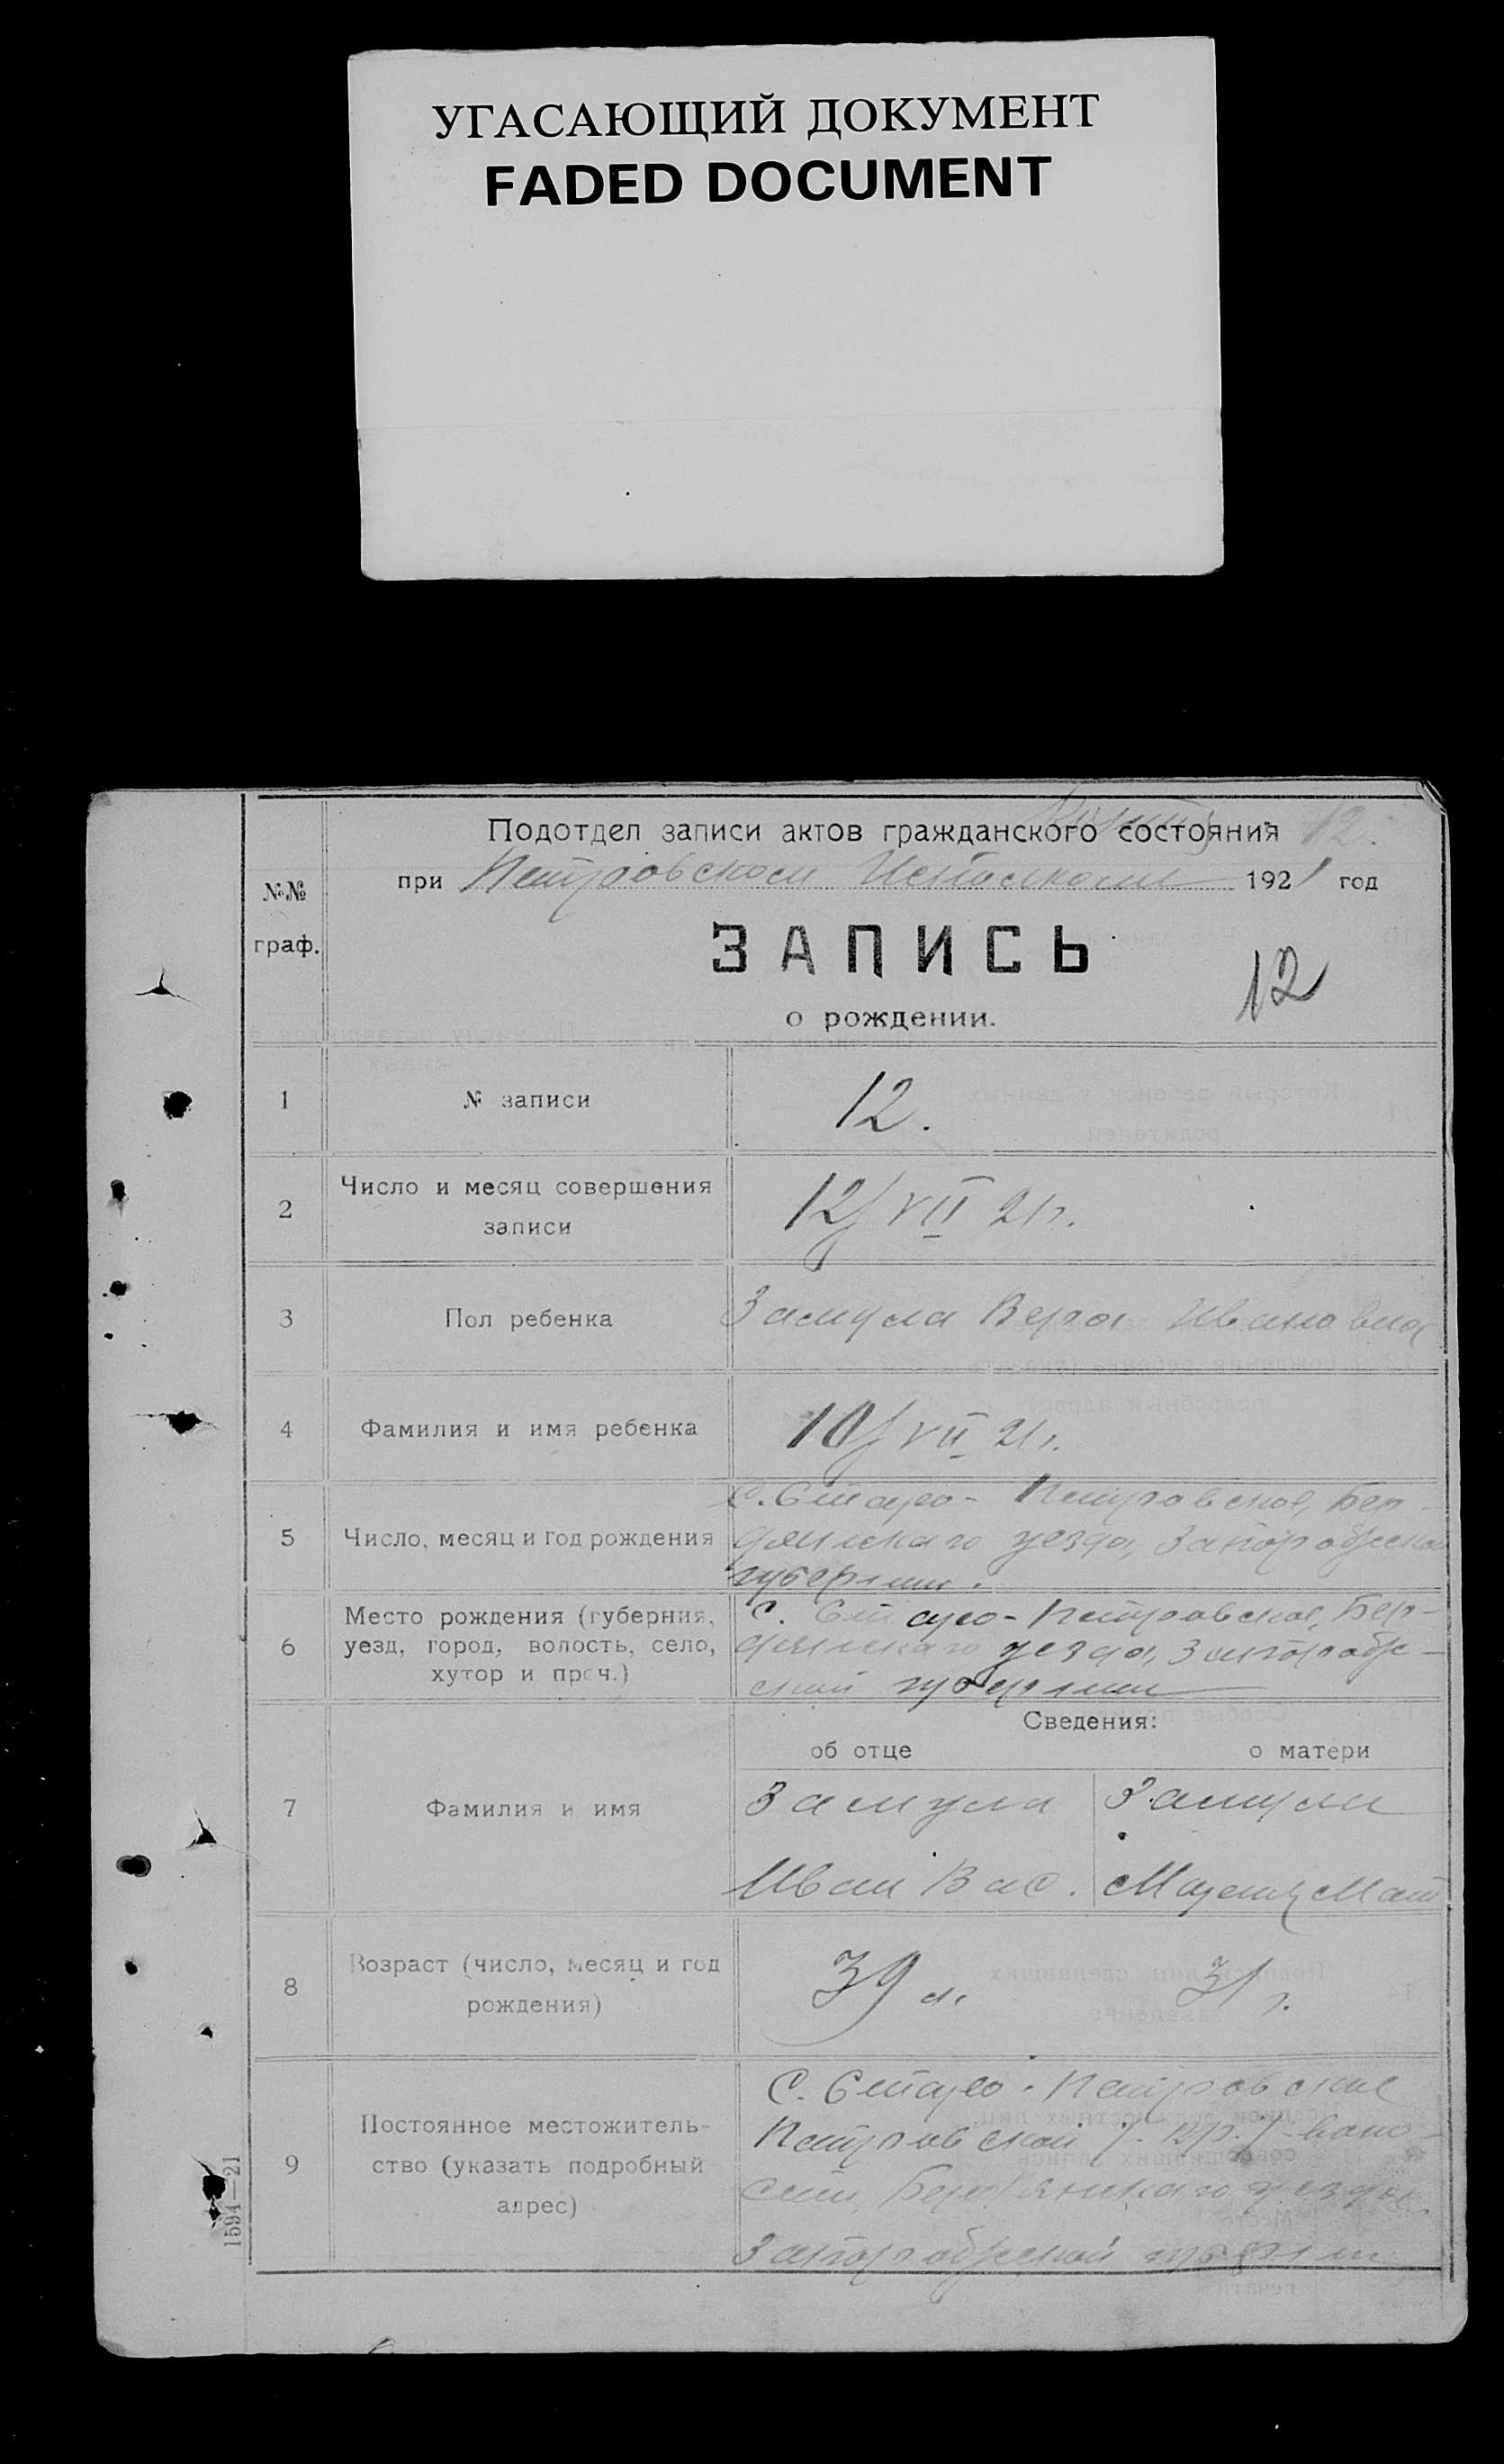 УГАСАЮЩИЙ ДОКУМЕНТ
FADED DOCUMENT
Подотдел записи актов гражданского состояния 12.
при Петровском Исполкоме 1921 год
№№
граф.
ЗАПИСЬ
12
о рождении.
1 № записи 12.
2 Число и месяц совершения
записи
12/VII 21 г.
3 Пол ребенка Замула Вера Ивановна
4 Фамилия и имя ребенка 10/VII 21 г.
5 Число, месяц и год рождения
С. Старо-Петровское, Бер-
дянскаго уезда, Запорожской
губернии.
6 Место рождения (губерния,
уезд, город, волость, село,
хутор и проч.)
С. Старо-Петровское, Бер-
дянскаго уезда, Запорож-
ской губернии
Сведения:
об отце о матери
7 Фамилия и имя
Замула Замула
Иван Вас. Мат
8 Возраст (число, месяц и год
рождения)
39 л. 31 г.
9 Постоянное местожитель-
ство (указать подробный
адрес)
С. Старо-Петровское
Петровской воло-
сти, Бердянскаго уезда,
Запорожской губернии
1594—21